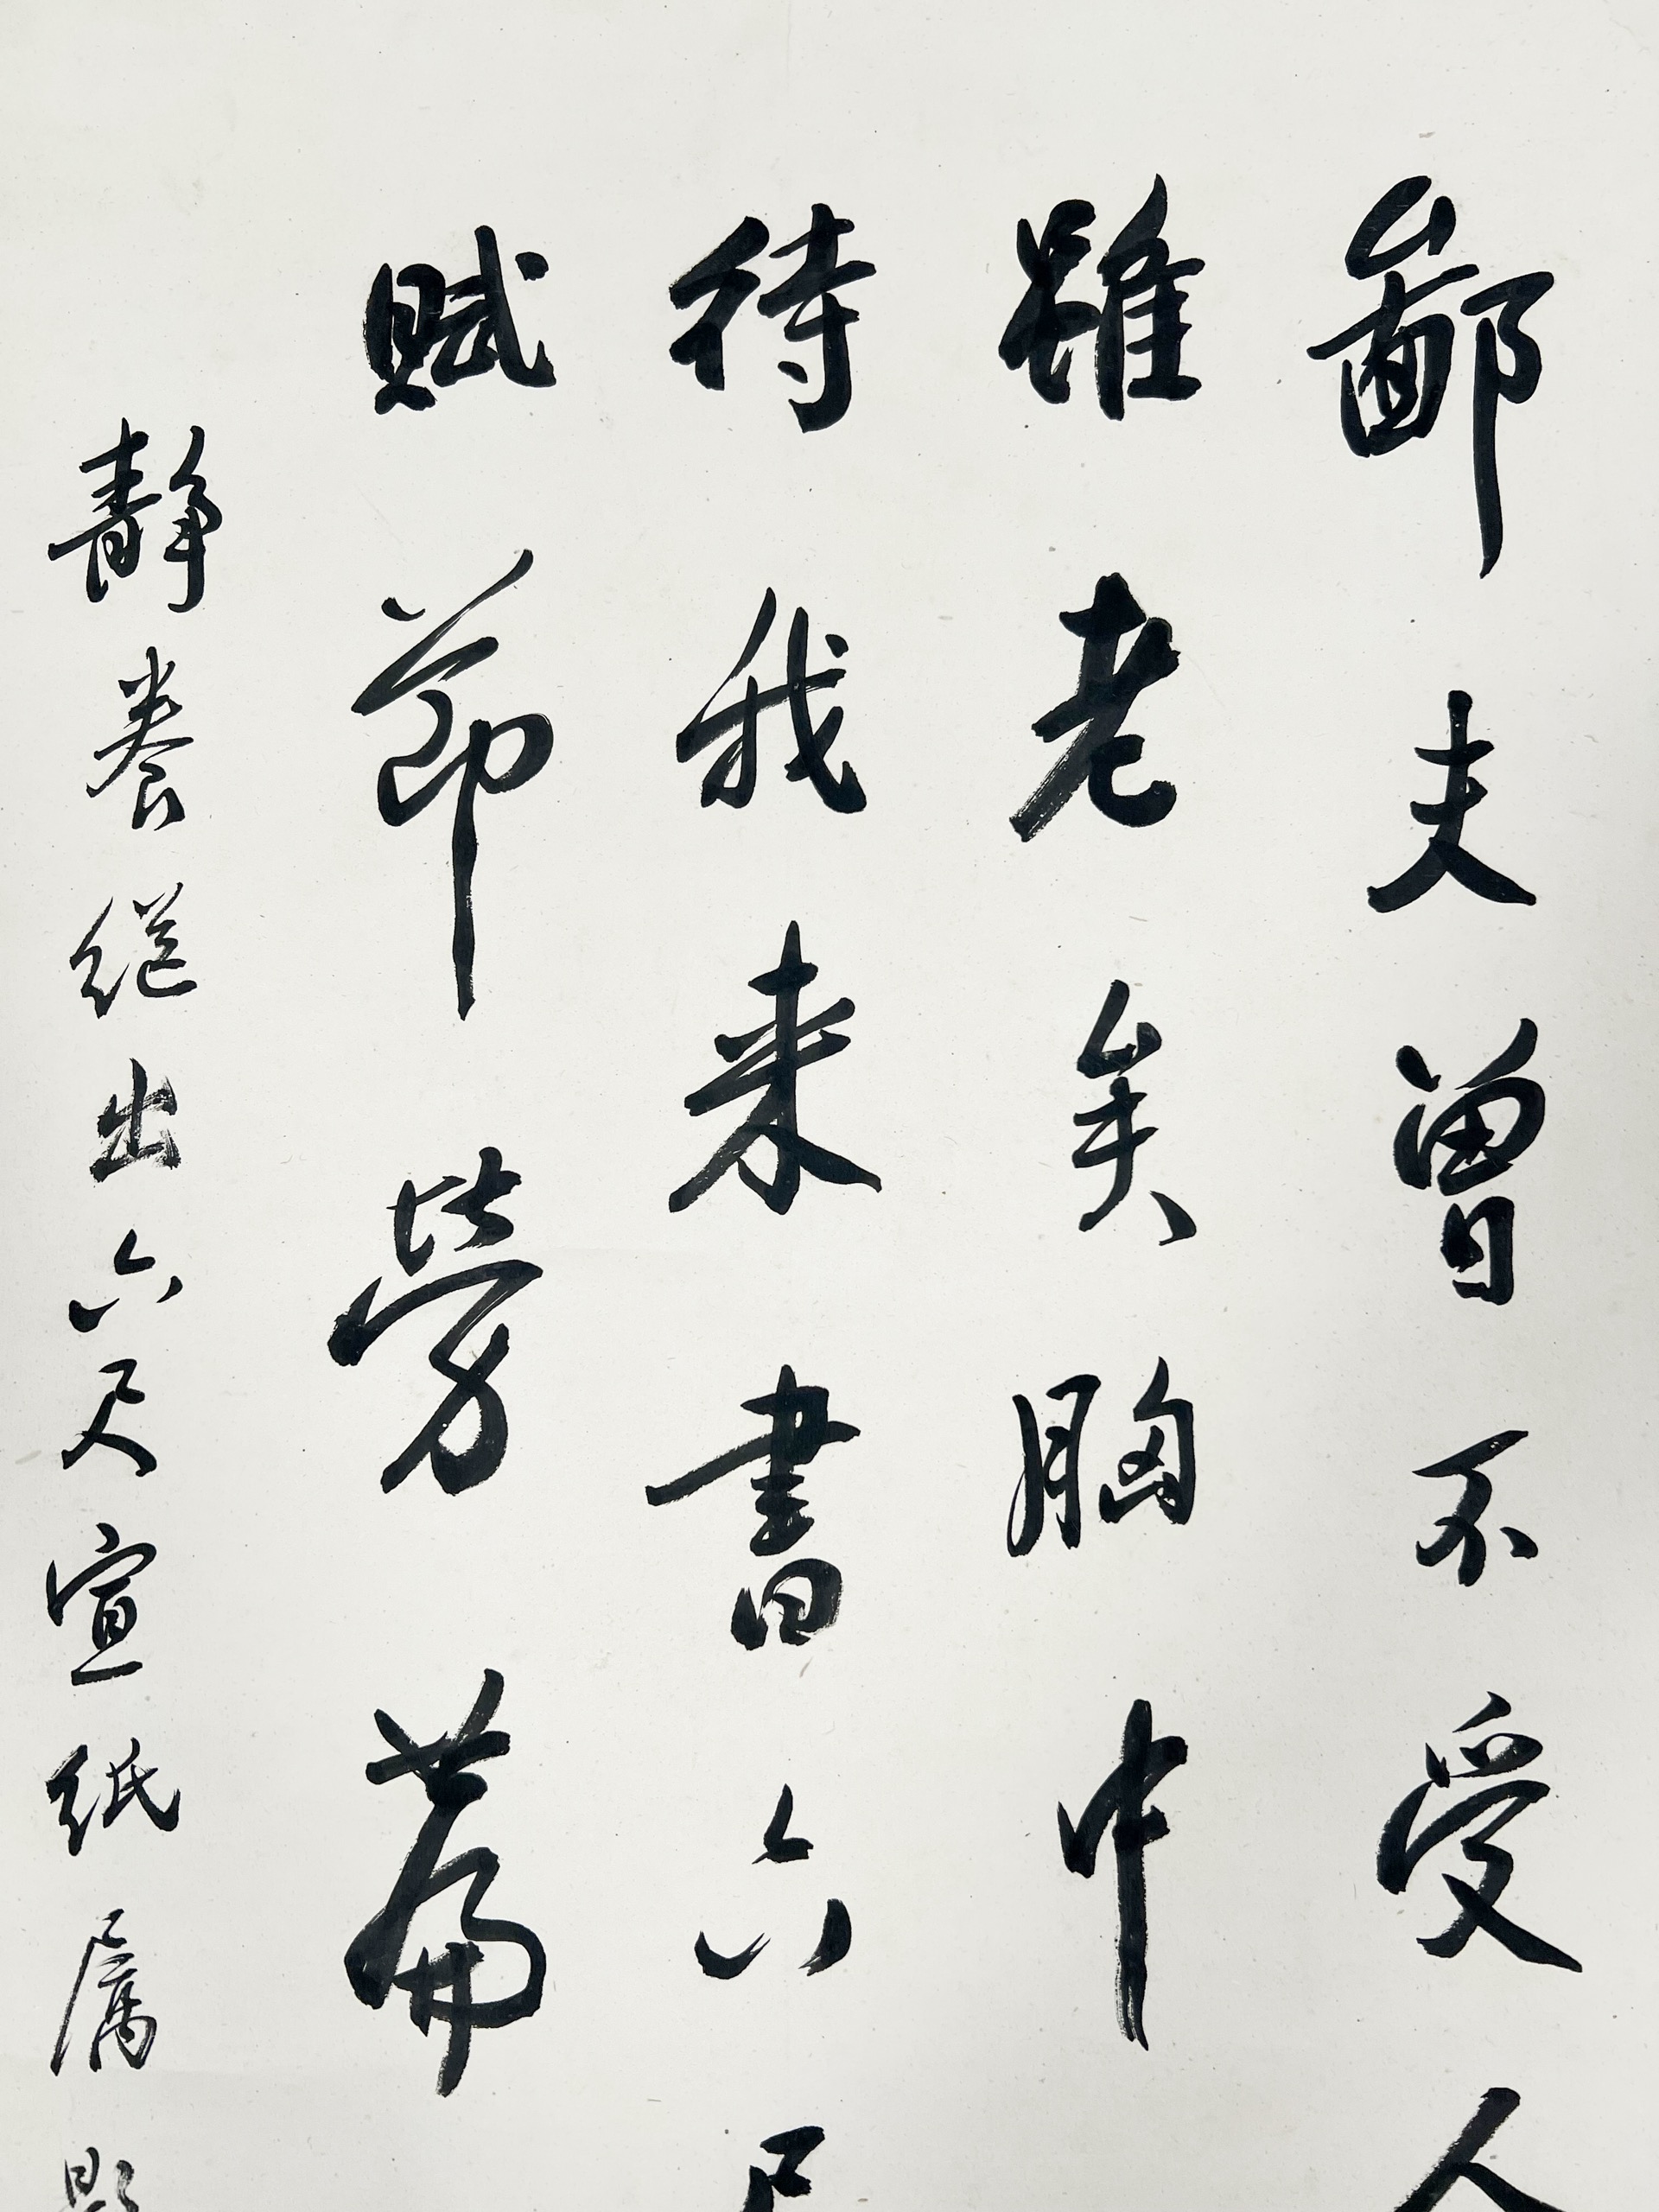 鄙夫曾不受人
雖老矣胸中
待我来書六尺
賦節勞薦
靜養繼出六尺宣紙屬題